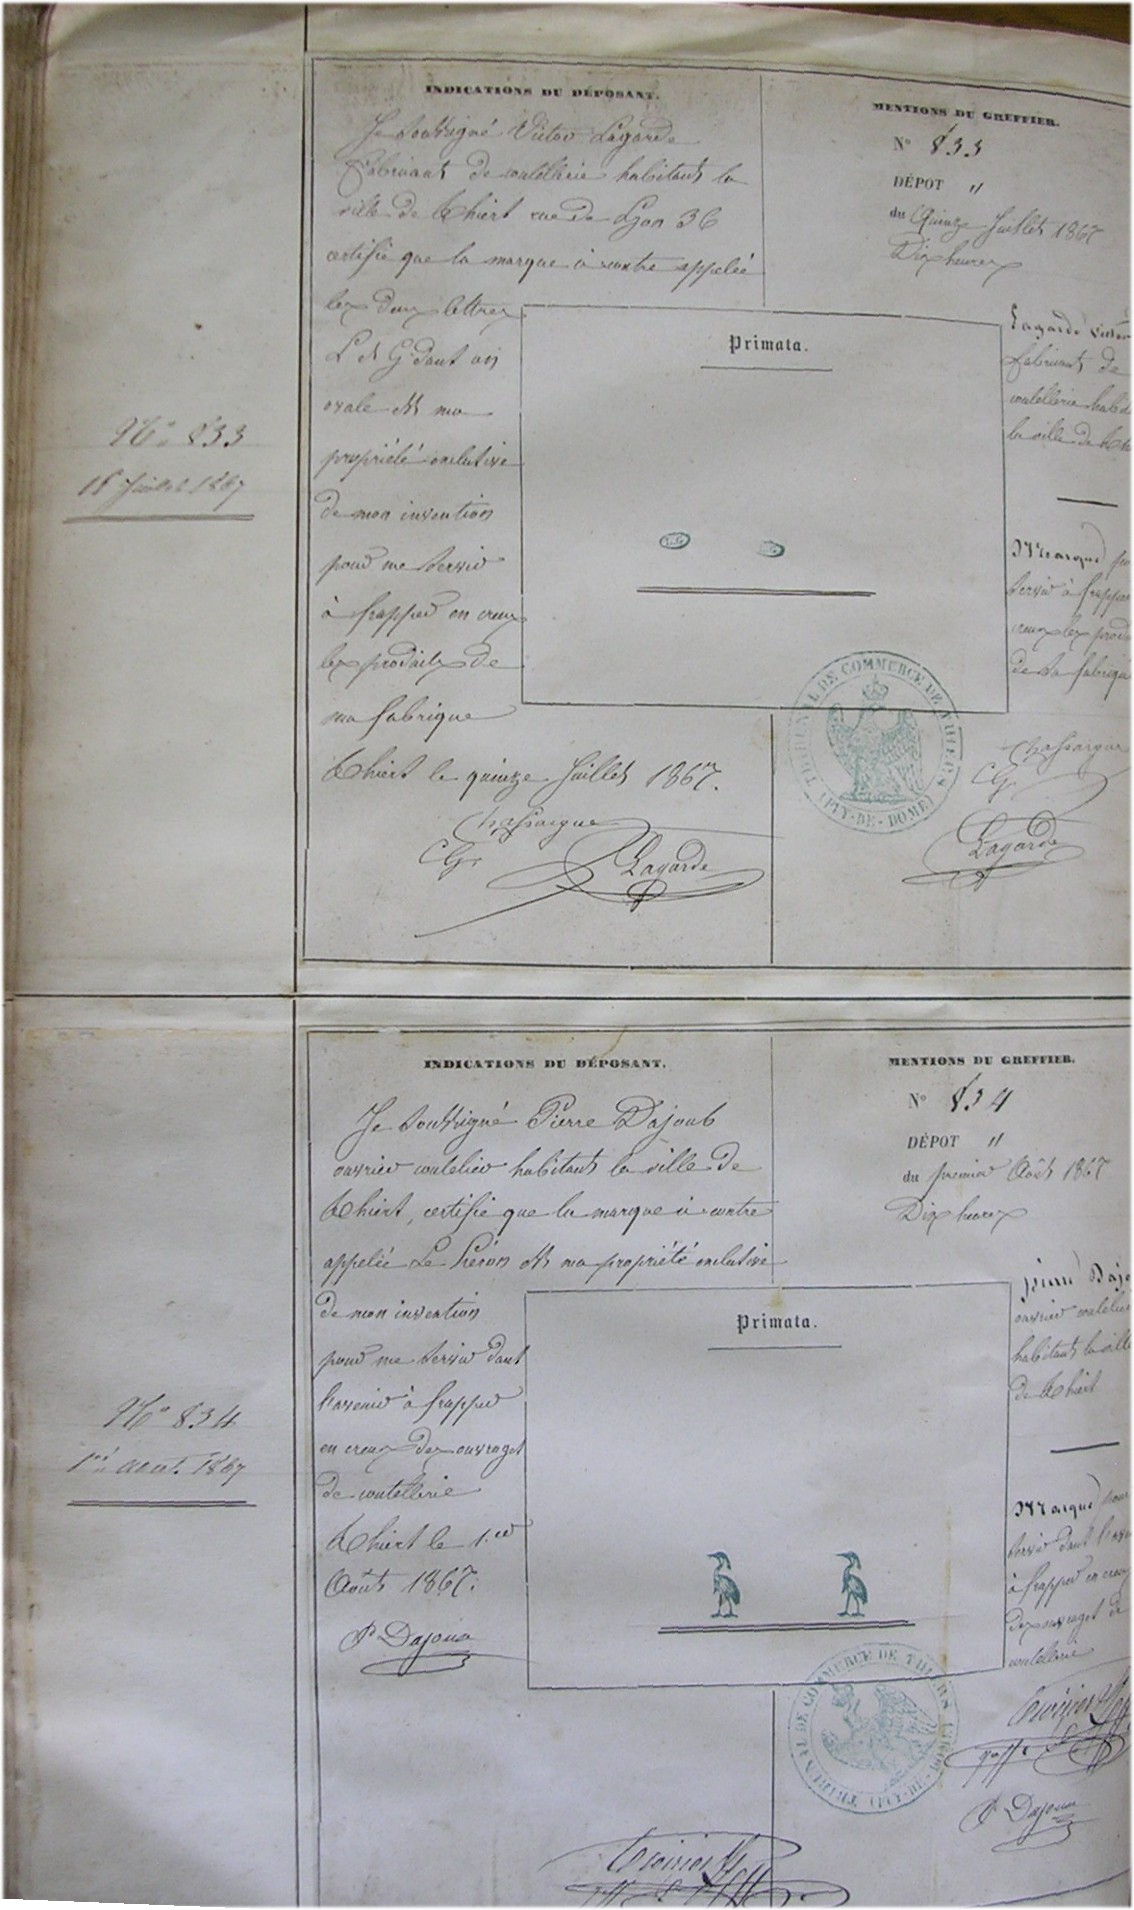 INDICATIONS DU DÉPOSANT.
Je soussigné Victor Lagarde
fabricant de coutellerie habitant la
ville de Thiers rue de Lyon 36
certifie que la marque ci contre appelée
les deux lettres
L et G dans un
ovale est ma
propriété exclusive
de mon invention
pour me servir
à frapper en creux
les produits de
ma fabrique
Thiers le quinze Juillet 1867.
Chassaigne
CG.
Lagarde
N° 833
15 Juillet 1867
Primata.
L.G
MENTIONS DU GREFFIER.
N° 833
DÉPOT "
du Quinze Juillet 1867
Dix heures
Lagarde Victor
fabricant de
coutellerie habit
la ville de Th
Marque po
servir à frapper
creux les produ
de sa fabrique
Chassaigne
CG.
Lagarde
TRIBUNAL DE COMMERCE DE THIERS
(PUY-DE-DOME)
INDICATIONS DU DÉPOSANT.
Je soussigné Pierre Dajoub
ouvrier coutelier habitant la ville de
Thiers, certifie que la marque ci contre
appelée Le Héron est ma propriété exclusive
de mon invention
pour me servir dans
l'avenir à frapper
en creux des ouvrages
de coutellerie
Thiers le 1.er
Août 1867.
P Dajoux
N° 834
1er aout. 1867
Primata.
MENTIONS DU GREFFIER.
N° 834
DÉPOT "
du premier Août 1867
Dix heures
Pierre Dajo
ouvrier coutelier
habitant la ville
de Thiers
Marque pour
servir dans l'ave
à frapper en creux
des ouvrages de
coutellerie
P Dajoux
TRIBUNAL DE COMMERCE DE THIERS (PUY-DE-DOME)